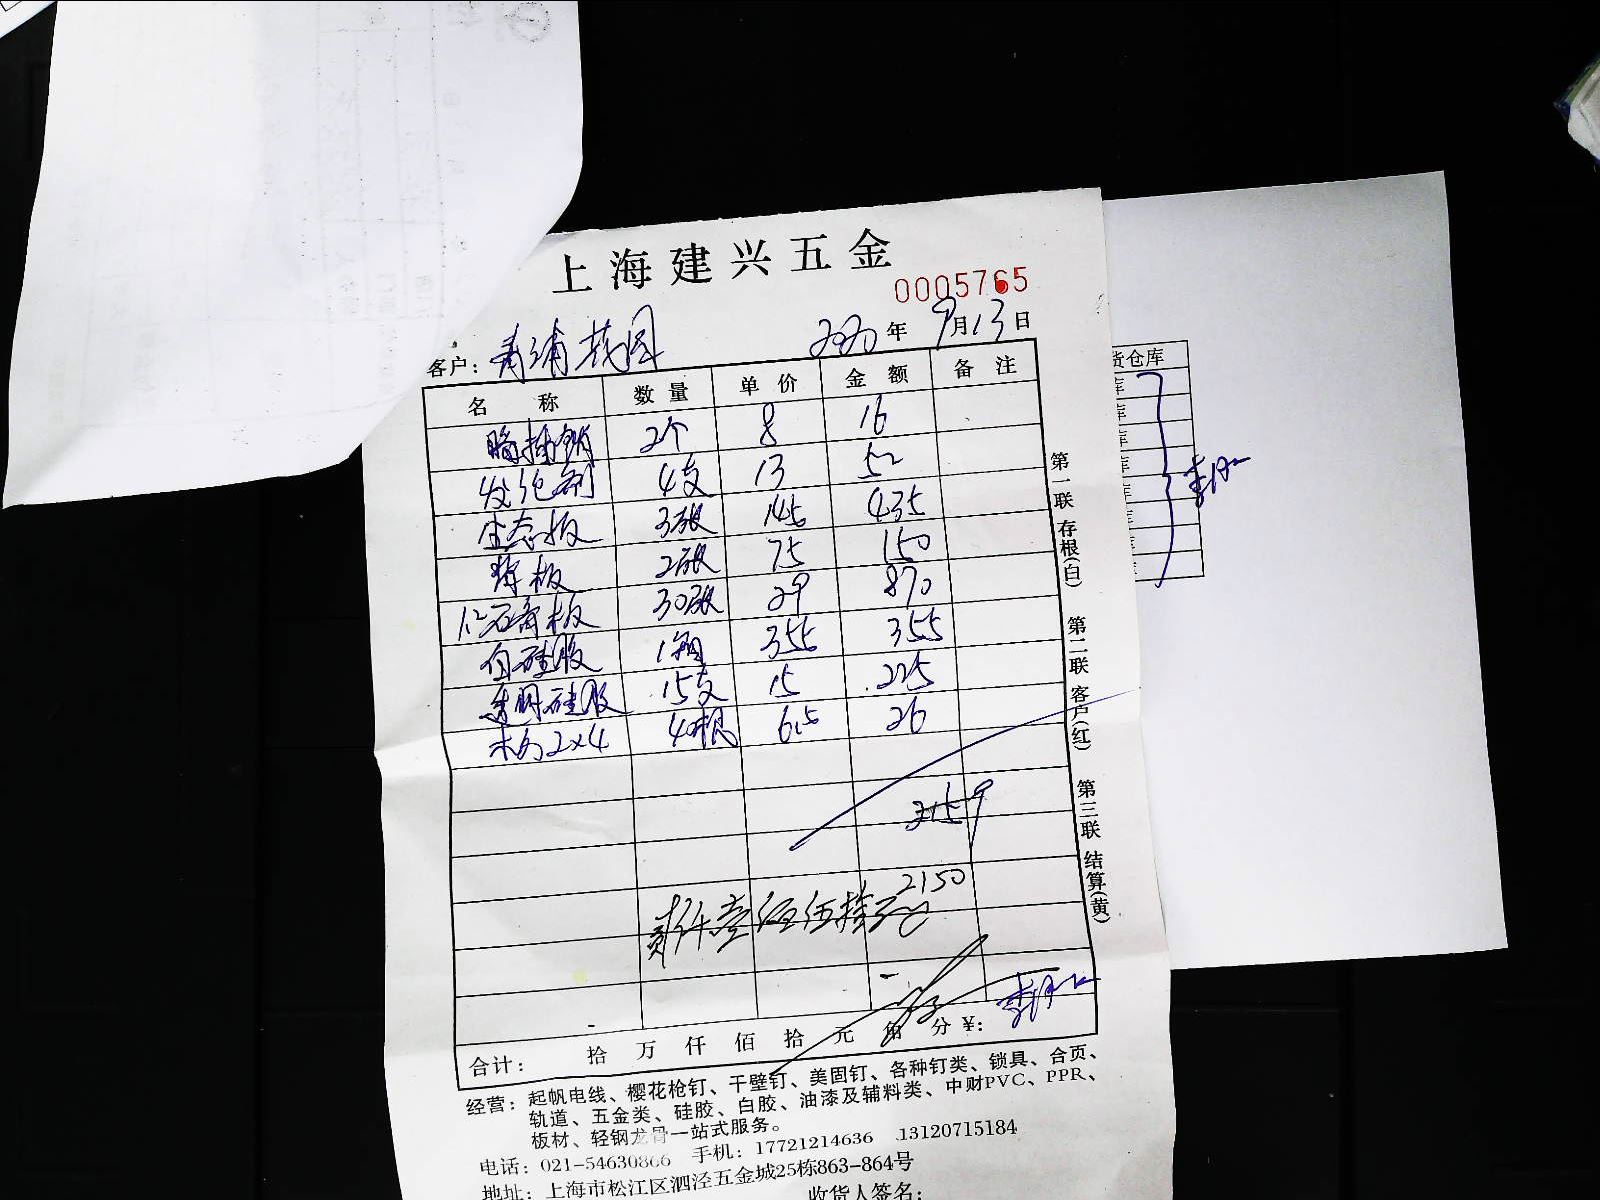 上海建兴五金
0005765
客户: 青浦花园 2020年9月13日
名称 数量 单价 金额 备注
暗插销 2个 8 16
发泡剂 4支 13 52
生态板 3张 145 435
背板 2张 75 150
12石膏板 30张 29 870
白硅胶 1箱 355 355
透明硅胶 15支 15 225
木方2×4 4根 6.5 26
2159
2150
贰仟壹佰伍拾元
合计: 拾 万 仟 佰 拾 元 角 分 ¥:
经营: 起帆电线、樱花枪钉、干壁钉、美固钉、各种钉类、锁具、合页、
轨道、五金类、硅胶、白胶、油漆及辅料类、中财PVC、PPR、
板材、轻钢龙骨一站式服务。
电话: 021-54630866 手机: 17721214636 13120715184
地址: 上海市松江区泗泾五金城25栋863-864号
收货人签名:
第一联 存根(白) 第二联 客户(红) 第三联 结算(黄)
货仓库
库
库
库
库
库